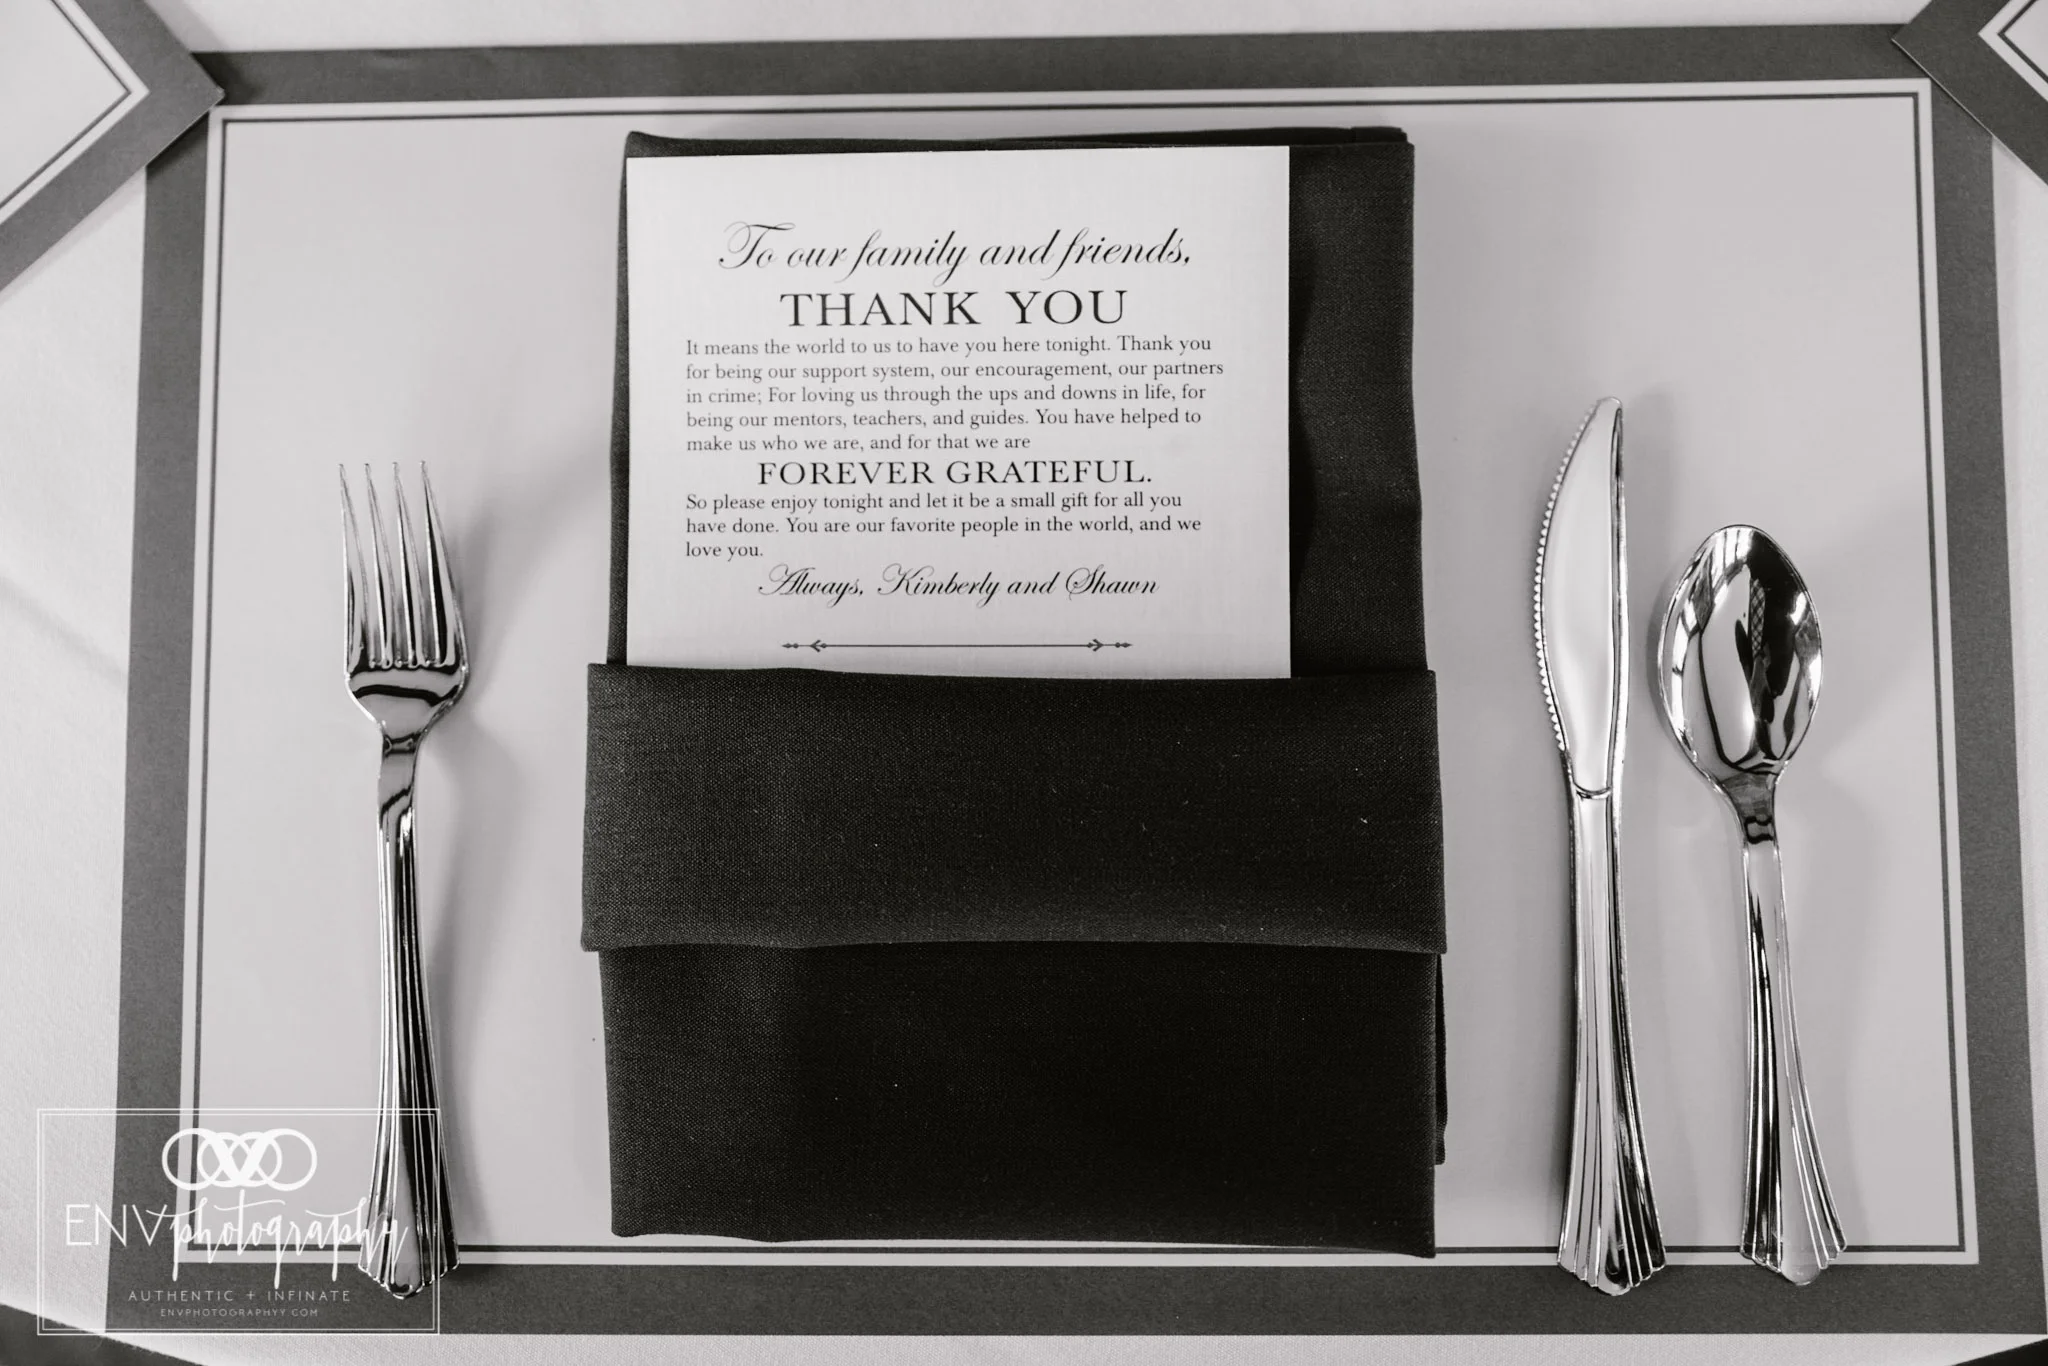 To our family and friends,
THANK YOU
It means the world to us to have you here tonight. Thank you
for being our support system, our encouragement, our partners
in crime; For loving us through the ups and downs in life, for
being our mentors, teachers, and guides. You have helped to
make us who we are, and for that we are
FOREVER GRATEFUL.
So please enjoy tonight and let it be a small gift for all you
have done. You are our favorite people in the world, and we
love you.
Always, Kimberly and Shawn
ENVphotography
AUTHENTIC + INFINATE
ENVPHOTOGRAPHYY.COM